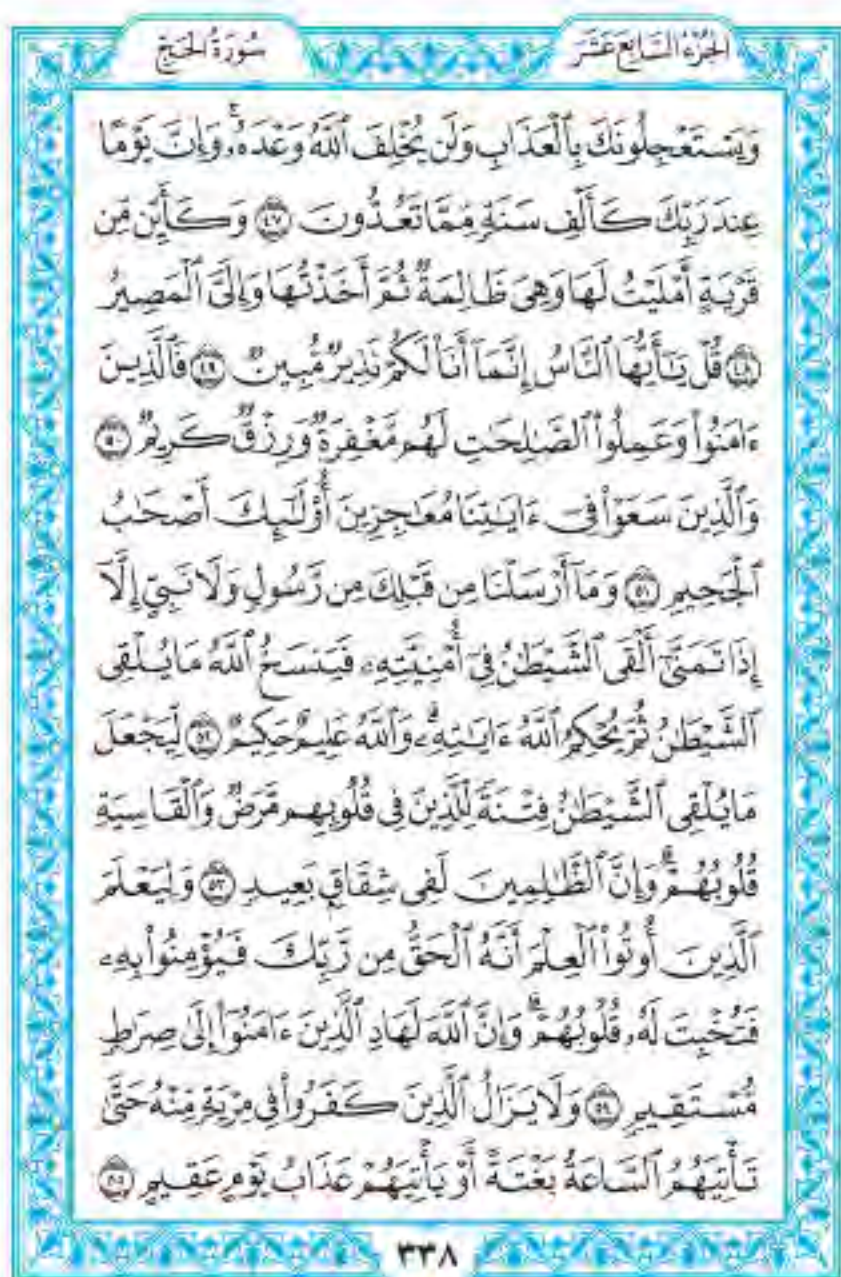 سُورَةُ الحَجّ
الجُزْءُ السَّابِعَ عَشَرَ
وَيَسْتَعْجِلُونَكَ بِٱلْعَذَابِ وَلَن يُخْلِفَ ٱللَّهُ وَعْدَهُۥۚ وَإِنَّ يَوْمًا
عِندَ رَبِّكَ كَأَلْفِ سَنَةٍ مِّمَّا تَعُدُّونَ ٤٧ وَكَأَيِّن مِّن
قَرْيَةٍ أَمْلَيْتُ لَهَا وَهِىَ ظَالِمَةٌ ثُمَّ أَخَذْتُهَا وَإِلَىَّ ٱلْمَصِيرُ
٤٨ قُلْ يَٰٓأَيُّهَا ٱلنَّاسُ إِنَّمَآ أَنَا۠ لَكُمْ نَذِيرٌ مُّبِينٌ ٤٩ فَٱلَّذِينَ
ءَامَنُوا۟ وَعَمِلُوا۟ ٱلصَّٰلِحَٰتِ لَهُم مَّغْفِرَةٌ وَرِزْقٌ كَرِيمٌ ٥٠
وَٱلَّذِينَ سَعَوْا۟ فِىٓ ءَايَٰتِنَا مُعَٰجِزِينَ أُو۟لَٰٓئِكَ أَصْحَٰبُ
ٱلْجَحِيمِ ٥١ وَمَآ أَرْسَلْنَا مِن قَبْلِكَ مِن رَّسُولٍ وَلَا نَبِىٍّ إِلَّآ
إِذَا تَمَنَّىٰٓ أَلْقَى ٱلشَّيْطَٰنُ فِىٓ أُمْنِيَّتِهِۦ فَيَنسَخُ ٱللَّهُ مَا يُلْقِى
ٱلشَّيْطَٰنُ ثُمَّ يُحْكِمُ ٱللَّهُ ءَايَٰتِهِۦۗ وَٱللَّهُ عَلِيمٌ حَكِيمٌ ٥٢ لِّيَجْعَلَ
مَا يُلْقِى ٱلشَّيْطَٰنُ فِتْنَةً لِّلَّذِينَ فِى قُلُوبِهِم مَّرَضٌ وَٱلْقَاسِيَةِ
قُلُوبُهُمْۗ وَإِنَّ ٱلظَّٰلِمِينَ لَفِى شِقَاقٍۭ بَعِيدٍ ٥٣ وَلِيَعْلَمَ
ٱلَّذِينَ أُوتُوا۟ ٱلْعِلْمَ أَنَّهُ ٱلْحَقُّ مِن رَّبِّكَ فَيُؤْمِنُوا۟ بِهِۦ
فَتُخْبِتَ لَهُۥ قُلُوبُهُمْۗ وَإِنَّ ٱللَّهَ لَهَادِ ٱلَّذِينَ ءَامَنُوٓا۟ إِلَىٰ صِرَٰطٍ
مُّسْتَقِيمٍ ٥٤ وَلَا يَزَالُ ٱلَّذِينَ كَفَرُوا۟ فِى مِرْيَةٍ مِّنْهُ حَتَّىٰ
تَأْتِيَهُمُ ٱلسَّاعَةُ بَغْتَةً أَوْ يَأْتِيَهُمْ عَذَابُ يَوْمٍ عَقِيمٍ ٥٥
٣٣٨